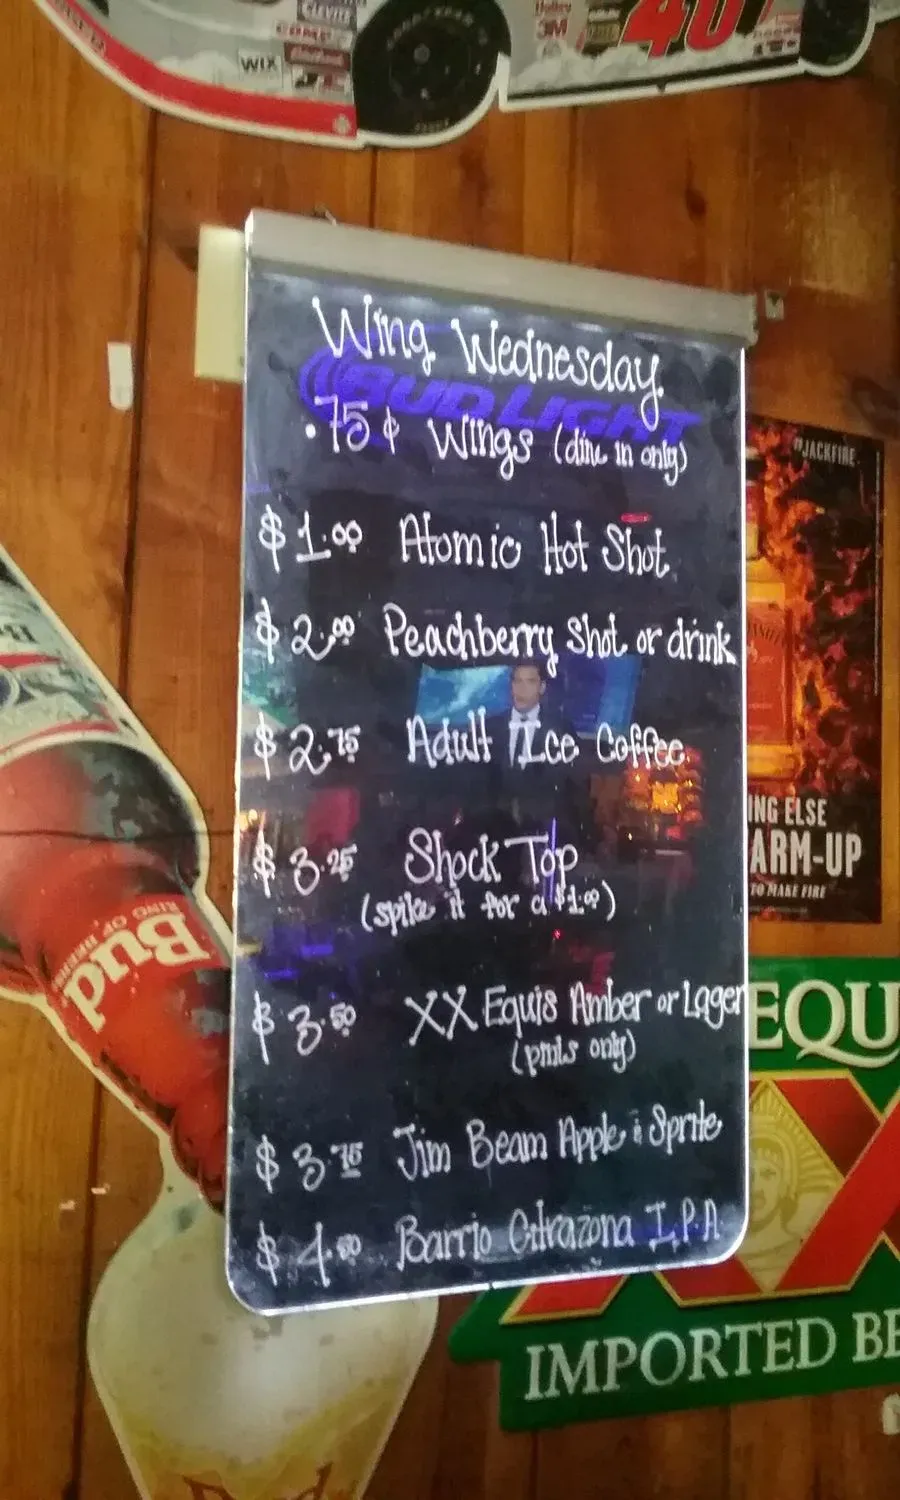 WIX
3M
40
Wing Wednesday
BUD LIGHT
.75¢ Wings (dine in only)
$1.00 Atomic Hot Shot
$2.00 Peachberry Shot or drink
$2.75 Adult Ice Coffee
$3.25 Shock Top
(spike it for a $1.00)
$3.50 XX Equis Amber or Lager
(pints only)
$3.75 Jim Beam Apple & Sprite
$4.00 Barrio Citrazona I.P.A
#JACKFIRE
ING ELSE
ARM-UP
TO MAKE FIRE
Bud
KING OF BEERS
EQU
XX
IMPORTED BE